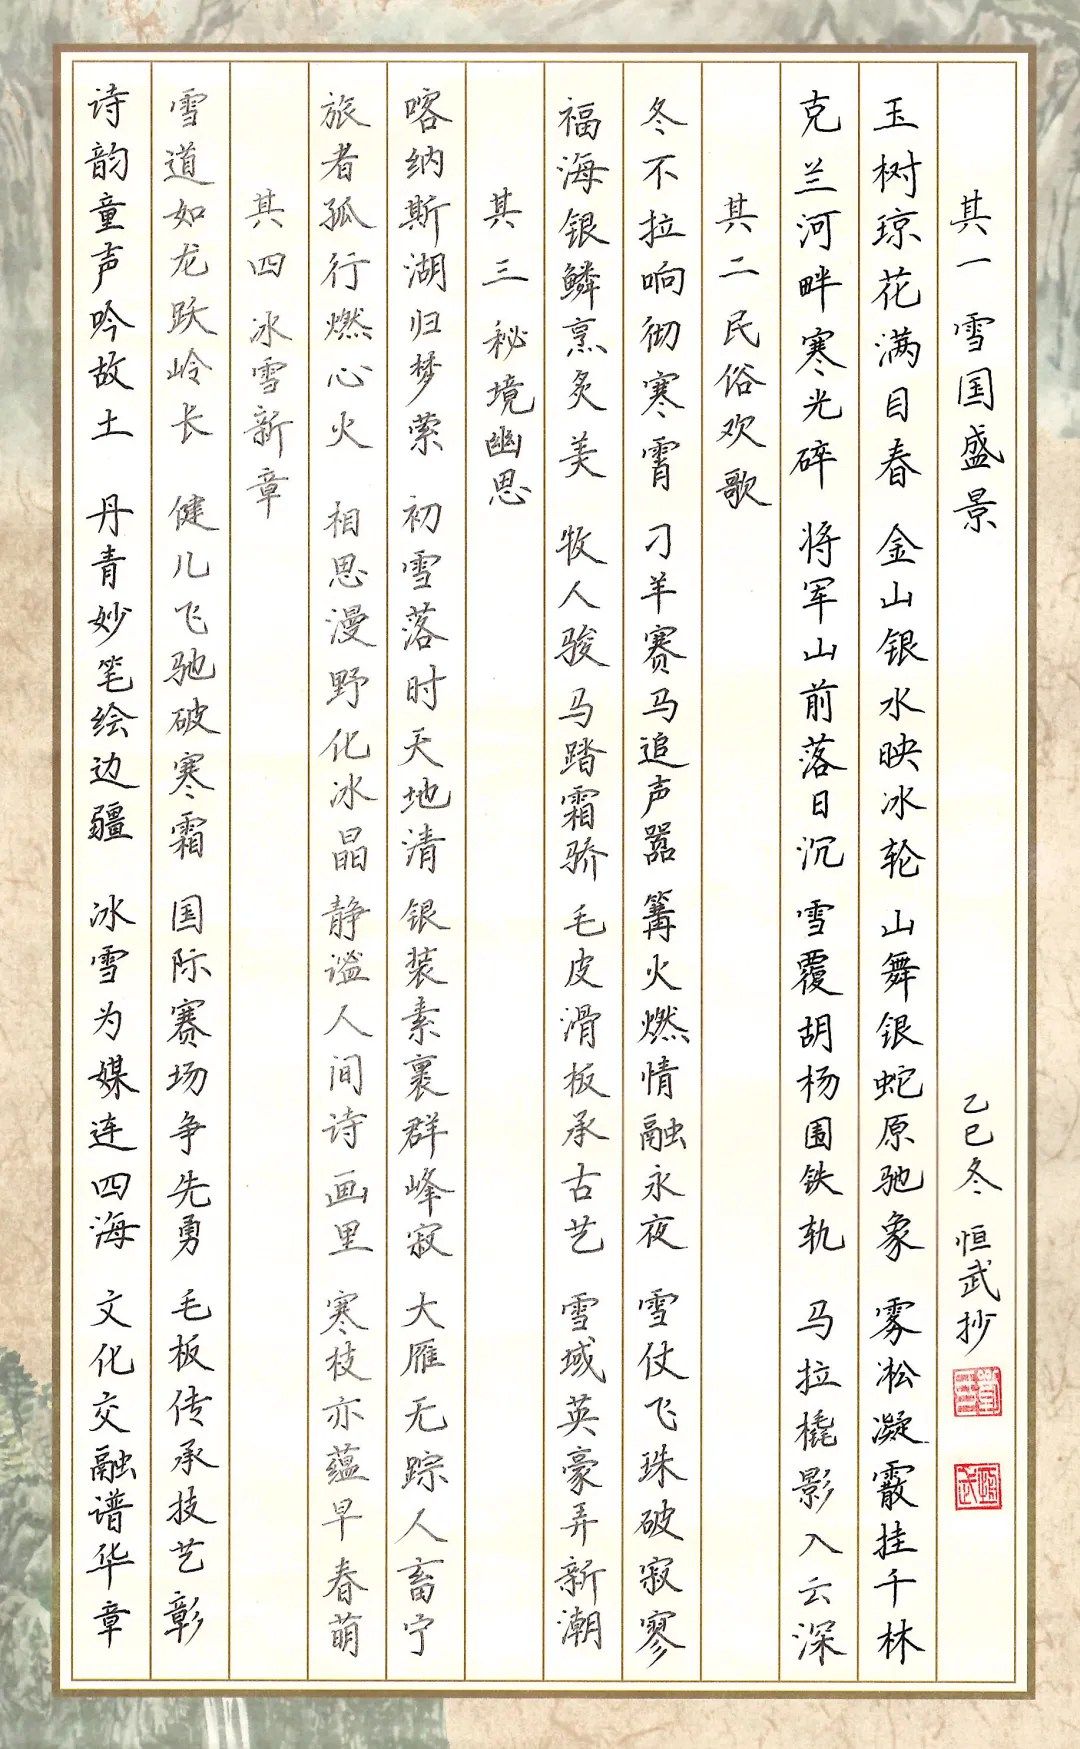 其一 雪国盛景 乙巳冬 恒武抄
玉树琼花满目春 金山银水映冰轮 山舞银蛇原驰象 雾凇凝霰挂千林
克兰河畔寒光碎 将军山前落日沉 雪覆胡杨围铁轨 马拉橇影入云深
其二 民俗欢歌
冬不拉响彻寒霄 刁羊赛马追声嚣 篝火燃情融永夜 雪仗飞珠破寂寥
福海银鳞烹炙美 牧人骏马踏霜骄 毛皮滑板承古艺 雪域英豪弄新潮
其三 秘境幽思
喀纳斯湖归梦萦 初雪落时天地清 银装素裹群峰寂 大雁无踪人畜宁
旅者孤行燃心火 相思漫野化冰晶 静谧人间诗画里 寒枝亦蕴早春萌
其四 冰雪新章
雪道如龙跃岭长 健儿飞驰破寒霜 国际赛场争先勇 毛板传承技艺彰
诗韵童声吟故土 丹青妙笔绘边疆 冰雪为媒连四海 文化交融谱华章